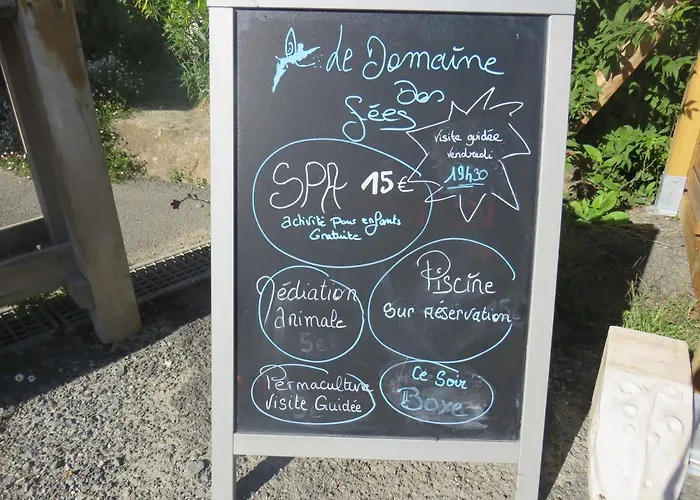 Le Domaine
Des
fées
visite guidée
vendredi
19h30
SPA 15€
activité pour enfants
Gratuite
Médiation
animale
5€
Piscine
Sur Réservation
Permaculture
visite Guidée
Ce Soir
Boxe